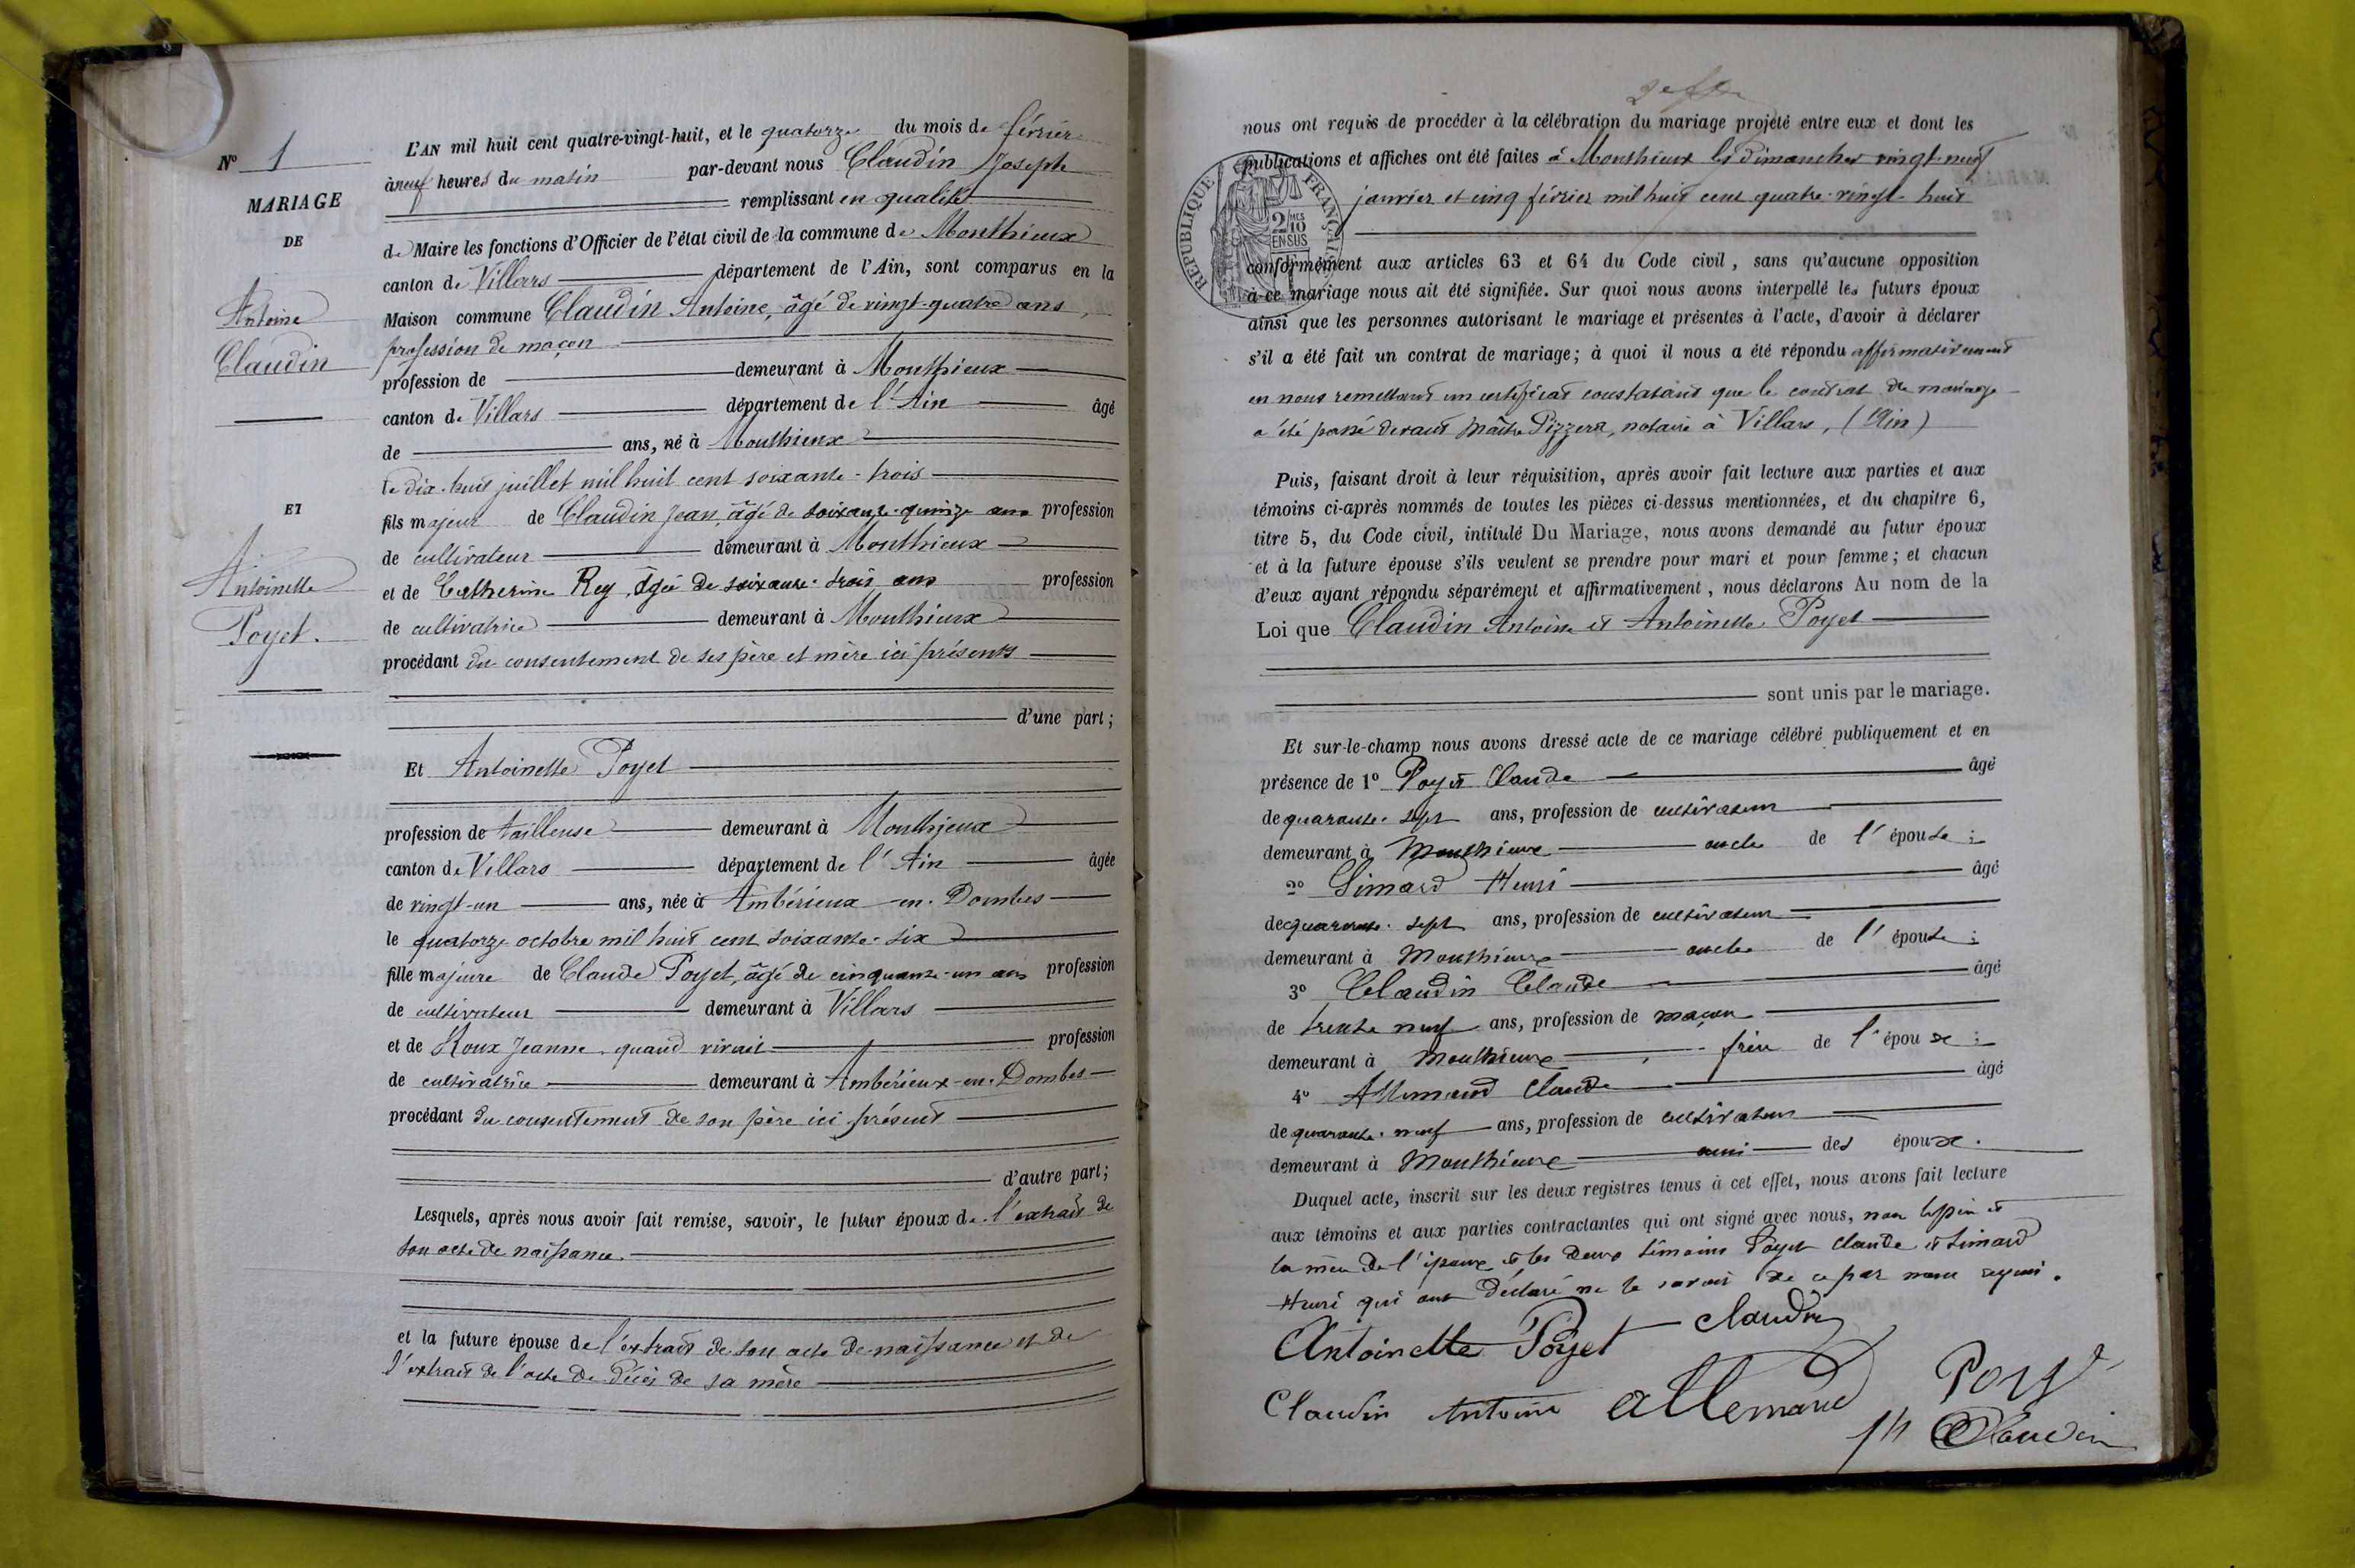 N° 1
MARIAGE
DE
Antoine
Claudin
ET
Antoinette
Poyet.
L'AN mil huit cent quatre-vingt-huit, et le quatorze du mois de février
à neuf heures du matin par-devant nous Claudin Joseph
remplissant en qualité
de Maire les fonctions d'Officier de l'état civil de la commune de Monthieux
canton de Villars département de l'Ain, sont comparus en la
Maison commune Claudin Antoine, âgé de vingt-quatre ans,
profession de maçon
profession de demeurant à Monthieux
canton de Villars département de l'Ain âgé
de ans, né à Monthieux
le dix-huit juillet mil huit cent soixante-trois
fils majeur de Claudin Jean, âgé de soixante-quinze ans profession
de cultivateur demeurant à Monthieux
et de Catherine Rey, âgée de soixante-trois ans profession
de cultivatrice demeurant à Monthieux
procédant du consentement de ses père et mère ici présents
d'une part;
Et Antoinette Poyet
profession de tailleuse demeurant à Monthieux
canton de Villars département de l'Ain âgée
de vingt-un ans, née à Ambérieux-en-Dombes
le quatorze octobre mil huit cent soixante-six
fille majeure de Claude Poyet, âgé de cinquante-un ans profession
de cultivateur demeurant à Villars
et de Roux Jeanne, quand vivait profession
de cultivatrice demeurant à Ambérieux-en-Dombes
procédant du consentement de son père ici présent
d'autre part;
Lesquels, après nous avoir fait remise, savoir, le futur époux de l'extrait de
son acte de naissance.
et la future épouse de l'extrait de son acte de naissance et de
l'extrait de l'acte de décès de sa mère
nous ont requis de procéder à la célébration du mariage projeté entre eux et dont les
publications et affiches ont été faites à Monthieux les dimanches vingt-neuf
janvier et cinq février mil huit cent quatre-vingt-huit
RÉPUBLIQUE FRANÇAISE
2/10 MES
EN SUS
conformément aux articles 63 et 64 du Code civil, sans qu'aucune opposition
à ce mariage nous ait été signifiée. Sur quoi nous avons interpellé les futurs époux
ainsi que les personnes autorisant le mariage et présentes à l'acte, d'avoir à déclarer
s'il a été fait un contrat de mariage; à quoi il nous a été répondu affirmativement
en nous remettant un certificat constatant que le contrat de mariage
a été passé devant Maître Pizzera, notaire à Villars, (Ain)
Puis, faisant droit à leur réquisition, après avoir fait lecture aux parties et aux
témoins ci-après nommés de toutes les pièces ci-dessus mentionnées, et du chapitre 6,
titre 5, du Code civil, intitulé Du Mariage, nous avons demandé au futur époux
et à la future épouse s'ils veulent se prendre pour mari et pour femme; et chacun
d'eux ayant répondu séparément et affirmativement, nous déclarons Au nom de la
Loi que Claudin Antoine et Antoinette Poyet
sont unis par le mariage.
Et sur-le-champ nous avons dressé acte de ce mariage célébré publiquement et en
présence de 1° Poyet Claude âgé
de quarante-sept ans, profession de cultivateur
demeurant à Monthieux oncle de l'épouse;
2° Simard Henri âgé
de quarante-sept ans, profession de cultivateur
demeurant à Monthieux oncle de l'épouse;
3° Claudin Claude âgé
de trente neuf ans, profession de maçon
demeurant à Monthieux frère de l'époux;
4° Allemand Claude âgé
de quarante-neuf ans, profession de cultivateur
demeurant à Monthieux ami des époux.
Duquel acte, inscrit sur les deux registres tenus à cet effet, nous avons fait lecture
aux témoins et aux parties contractantes qui ont signé avec nous, non le père et
la mère de l'époux et les deux témoins Poyet Claude et Simard
Henri qui ont déclaré ne le savoir de ce par nous requis.
Antoinette Poyet Claudin
Claudin Antoine Allemand Poyet
Jh Claudin